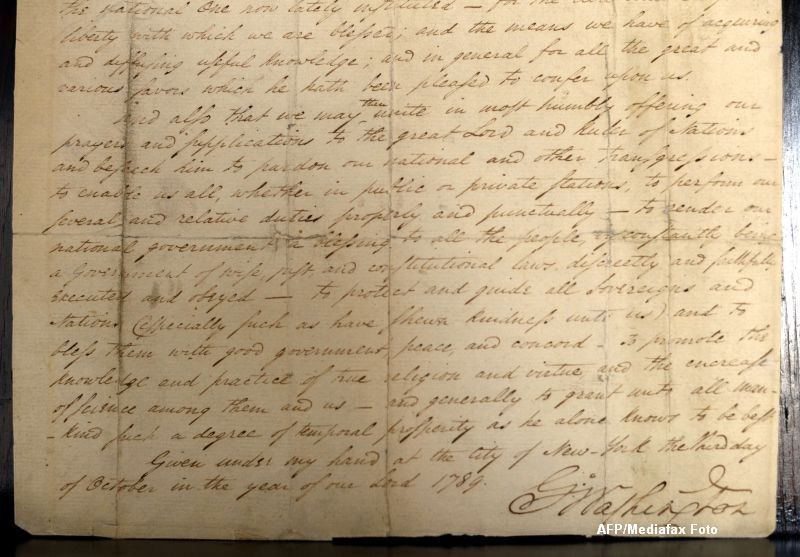 the national one now lately instituted — for the
liberty with which we are blessed; and the means we have of acquiring
and diffusing useful knowledge; and in general for all the great and
various favors which he hath been pleased to confer upon us.
And also that we may then unite in most humbly offering our
prayers and supplications to the great Lord and Ruler of Nations
and beseech him to pardon our national and other transgressions —
to enable us all, whether in public or private stations, to perform our
several and relative duties properly and punctually — to render our
national government a blessing to all the people, by constantly being
a Government of wise, just, and constitutional laws, discreetly and faithfully
executed and obeyed — to protect and guide all Sovereigns and
Nations (especially such as have shewn kindness unto us) and to
bless them with good government, peace, and concord — To promote the
knowledge and practice of true religion and virtue, and the encrease
of science among them and us — and generally to grant unto all man-
-kind such a degree of temporal prosperity as he alone knows to be best.
Given under my hand at the city of New-York the third day
of October in the year of our Lord 1789.
Go: Washington
AFP/Mediafax Foto